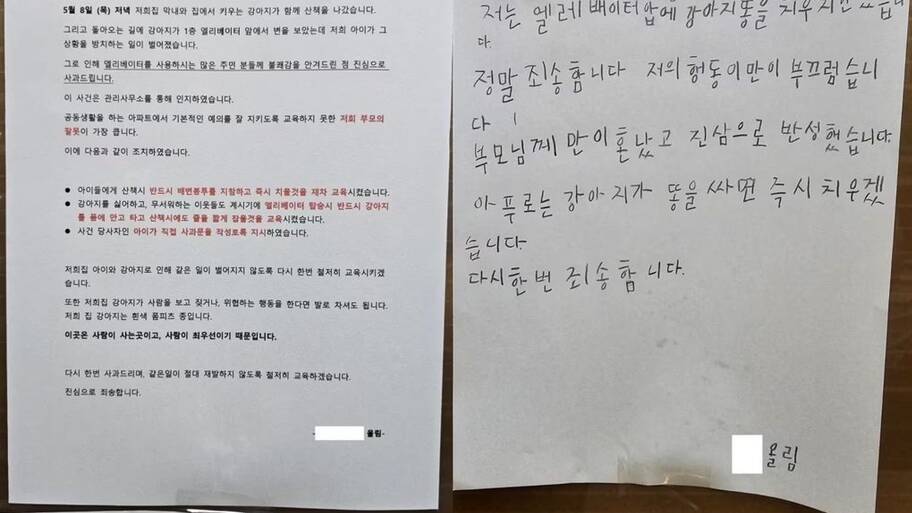 5월 8일 (목) 저녁 저희집 막내와 집에서 키우는 강아지가 함께 산책을 나갔습니다.
그리고 돌아오는 길에 강아지가 1층 엘리베이터 앞에서 변을 보았는데 저희 아이가 그
상황을 방치하는 일이 벌어졌습니다.
그로 인해 엘리베이터를 사용하시는 많은 주민 분들께 불쾌감을 안겨드린 점 진심으로
사과드립니다.
이 사건은 관리사무소를 통해 인지하였습니다.
공동생활을 하는 아파트에서 기본적인 예의를 잘 지키도록 교육하지 못한 저희 부모의
잘못이 가장 큽니다.
이에 다음과 같이 조치하였습니다.
● 아이들에게 산책시 반드시 배변봉투를 지참하고 즉시 치울것을 재차 교육시켰습니다.
● 강아지를 싫어하고, 무서워하는 이웃들도 계시기에 엘리베이터 탑승시 반드시 강아지
를 품에 안고 타고 산책시에도 줄을 짧게 잡을것을 교육시켰습니다.
● 사건 당사자인 아이가 직접 사과문을 작성토록 지시하였습니다.
저희집 아이와 강아지로 인해 같은 일이 벌어지지 않도록 다시 한번 철저히 교육시키겠
습니다.
또한 저희집 강아지가 사람을 보고 짖거나, 위협하는 행동을 한다면 발로 차셔도 됩니다.
저희 집 강아지는 흰색 폼피츠 종입니다.
이곳은 사람이 사는곳이고, 사람이 최우선이기 때문입니다.
다시 한번 사과드리며, 같은일이 절대 재발하지 않도록 철저히 교육하겠습니다.
진심으로 죄송합니다.
- 올림-
저는 엘레베이터 앞에 강아지똥을 치우지 안았습니
다.
정말 죄송함니다 저의 행동이만이 부끄럽습니
다
부모님께 만이혼났고 진심으로 반성했습니다.
아푸로는 강아지가 똥을 싸면 즉시 치우겠
습니다.
다시한번 죄송합니다.
올림